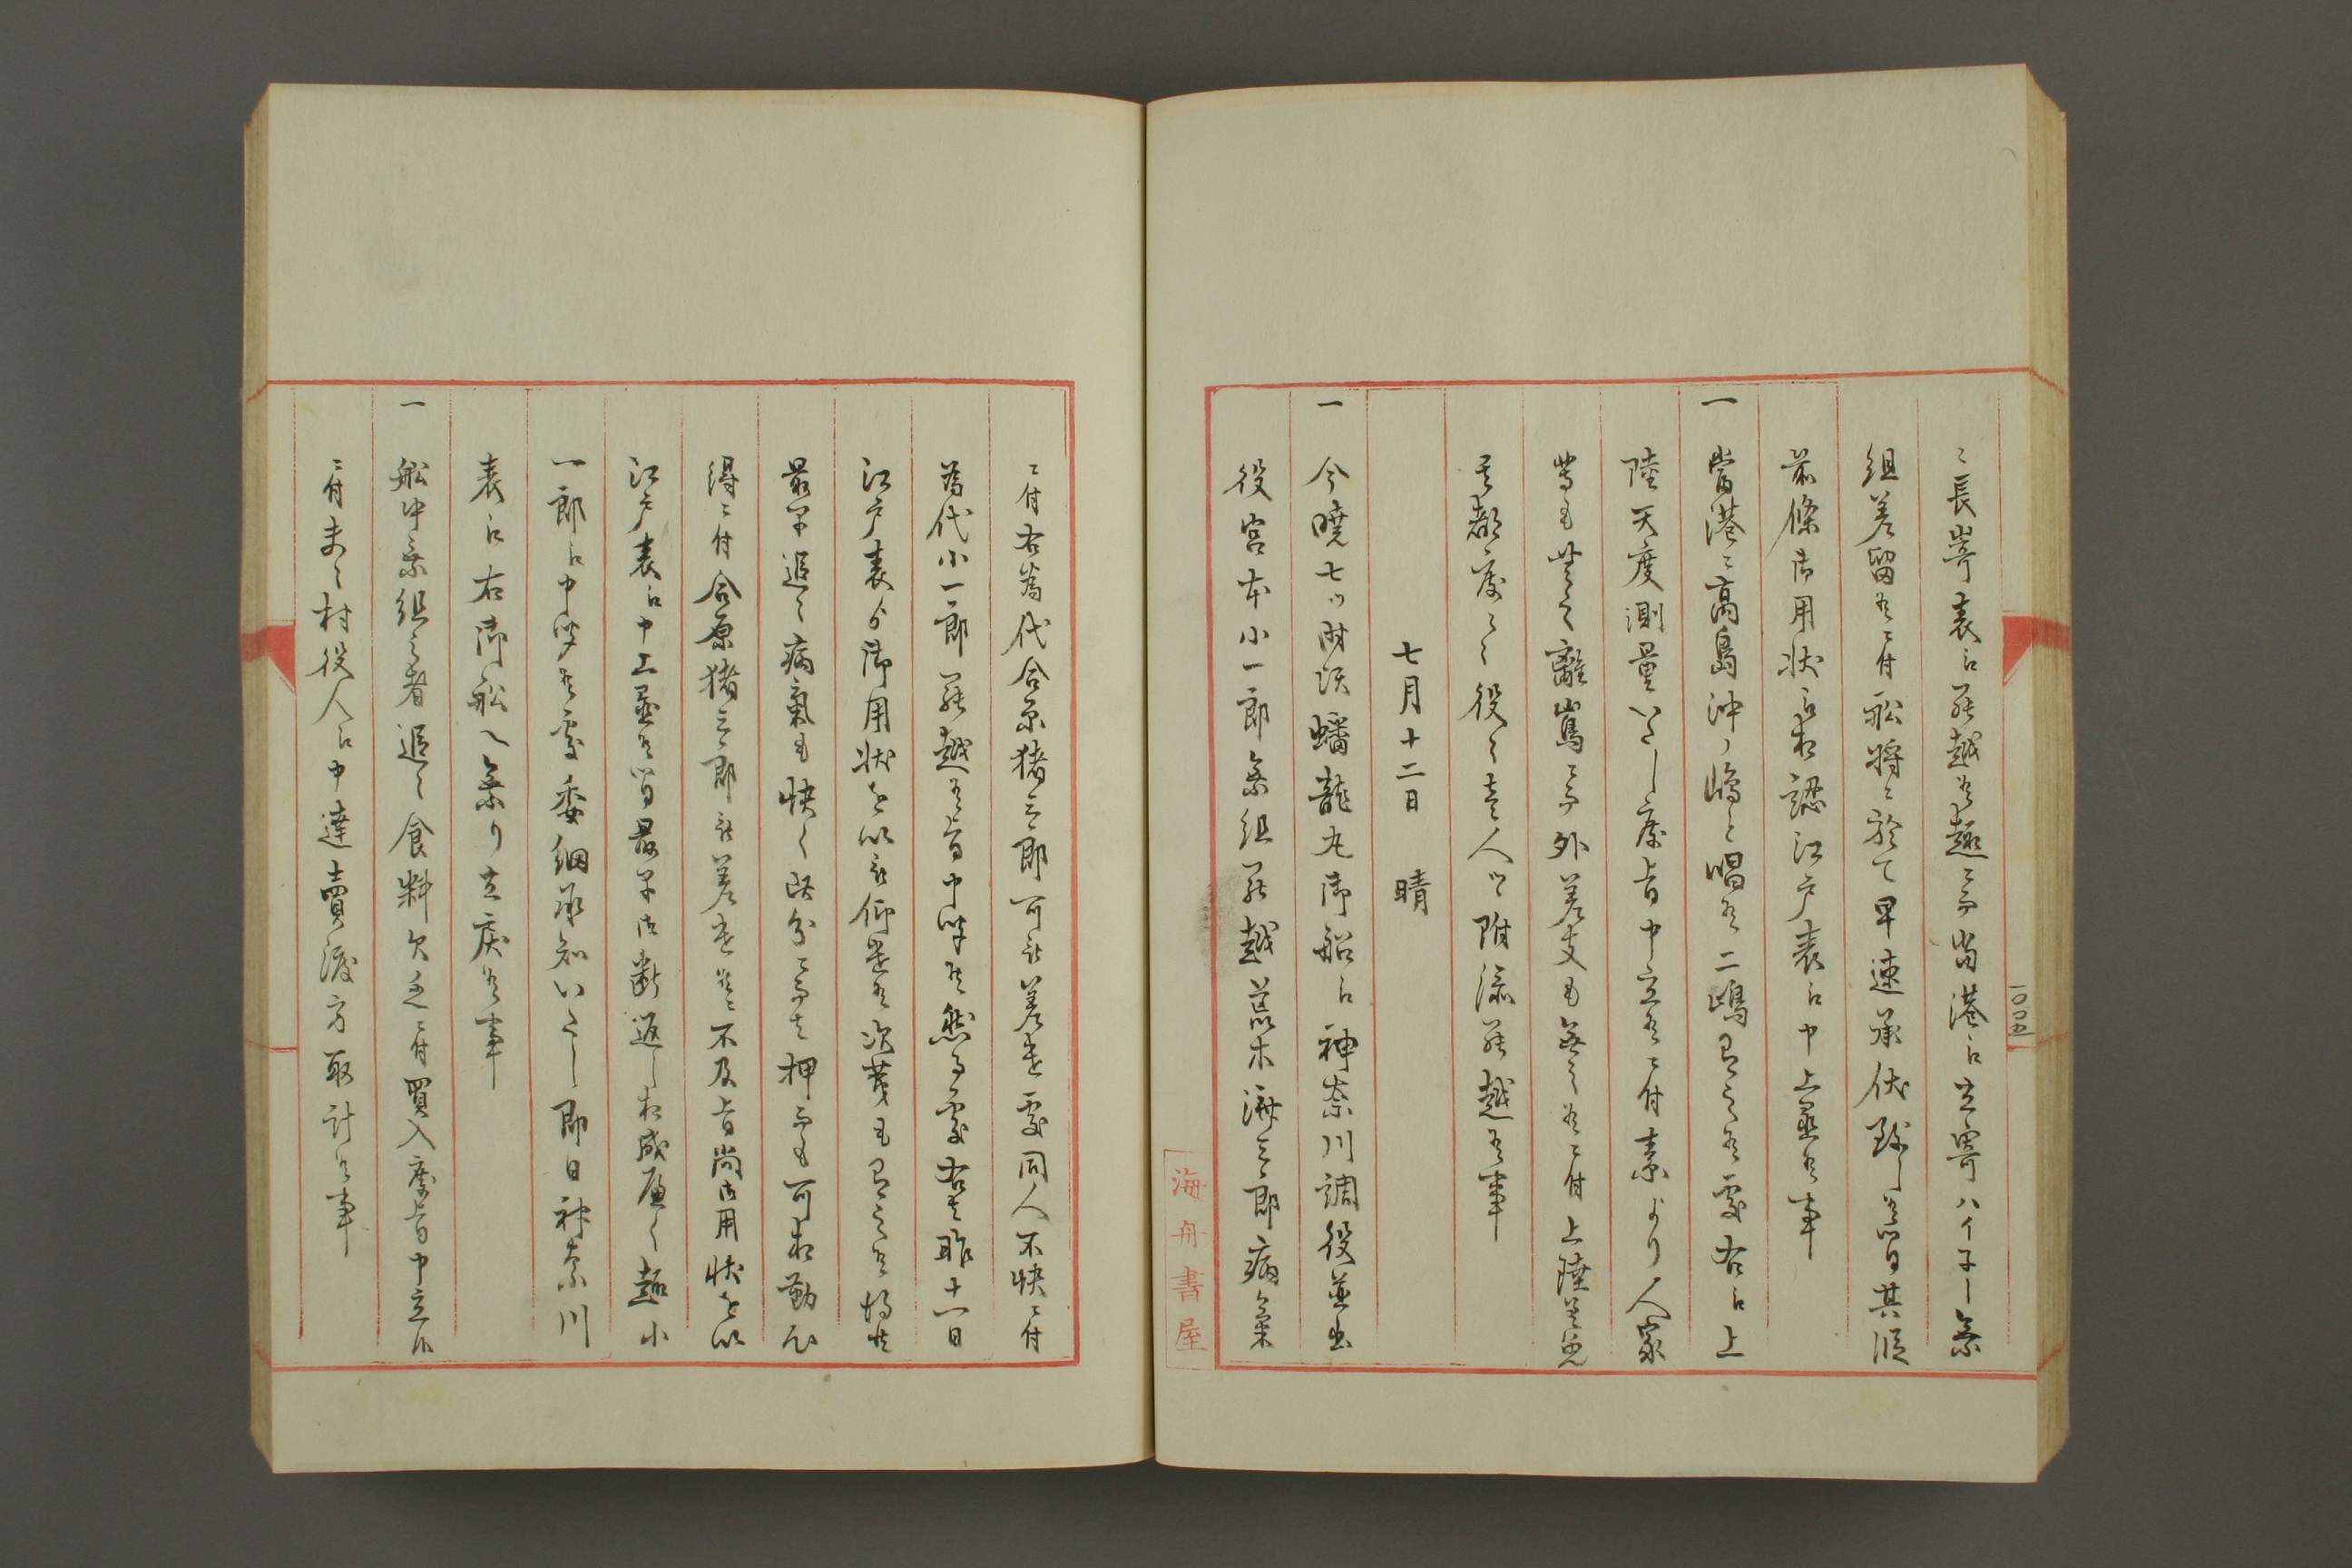 ニ長崎表江罷越候趣ニ而当港江立寄ハイネー乗
組差留候ニ付船将ニ於て早速承伏致し候間其段
前條御用状江相認江戸表江申上置候事
一 當港ニ高島沖ノ嶋と唱候二嶋有之候処右江上
陸天度測量いたし度旨申立候ニ付素より人家
等も無之離嶌ニ而外差支も無之候ニ付上陸差免
其都度々々役々壱人ツヽ附添罷越候事
七月十二日 晴
一 今暁七ツ時頃蟠龍丸御船江神奈川調役並出
役宮本小一郎乗組罷越荒木済三郎病気
ニ付右為代合原猪三郎可被差遣処同人不快ニ付
為代小一郎罷越候旨申聞候然る処右は昨十一日
江戸表ゟ御用状を以被仰遣候次第も有之候得共
最早追々病氣も快く此分ニ而は押而も可相勤心
得ニ付合原猪三郎被差遣候ニ不及旨尚御用状を以
江戸表江申上置候間最早御断返し相成度く趣小
一郎江申聞候処委細承知いたし即日神奈川
表江右御船へ乗り立戻候事
一 船中乗組之者追々食料欠乏ニ付買入度旨申立候
ニ付夫々村役人江申達賣渡方取計候事
一〇四五
海舟書屋